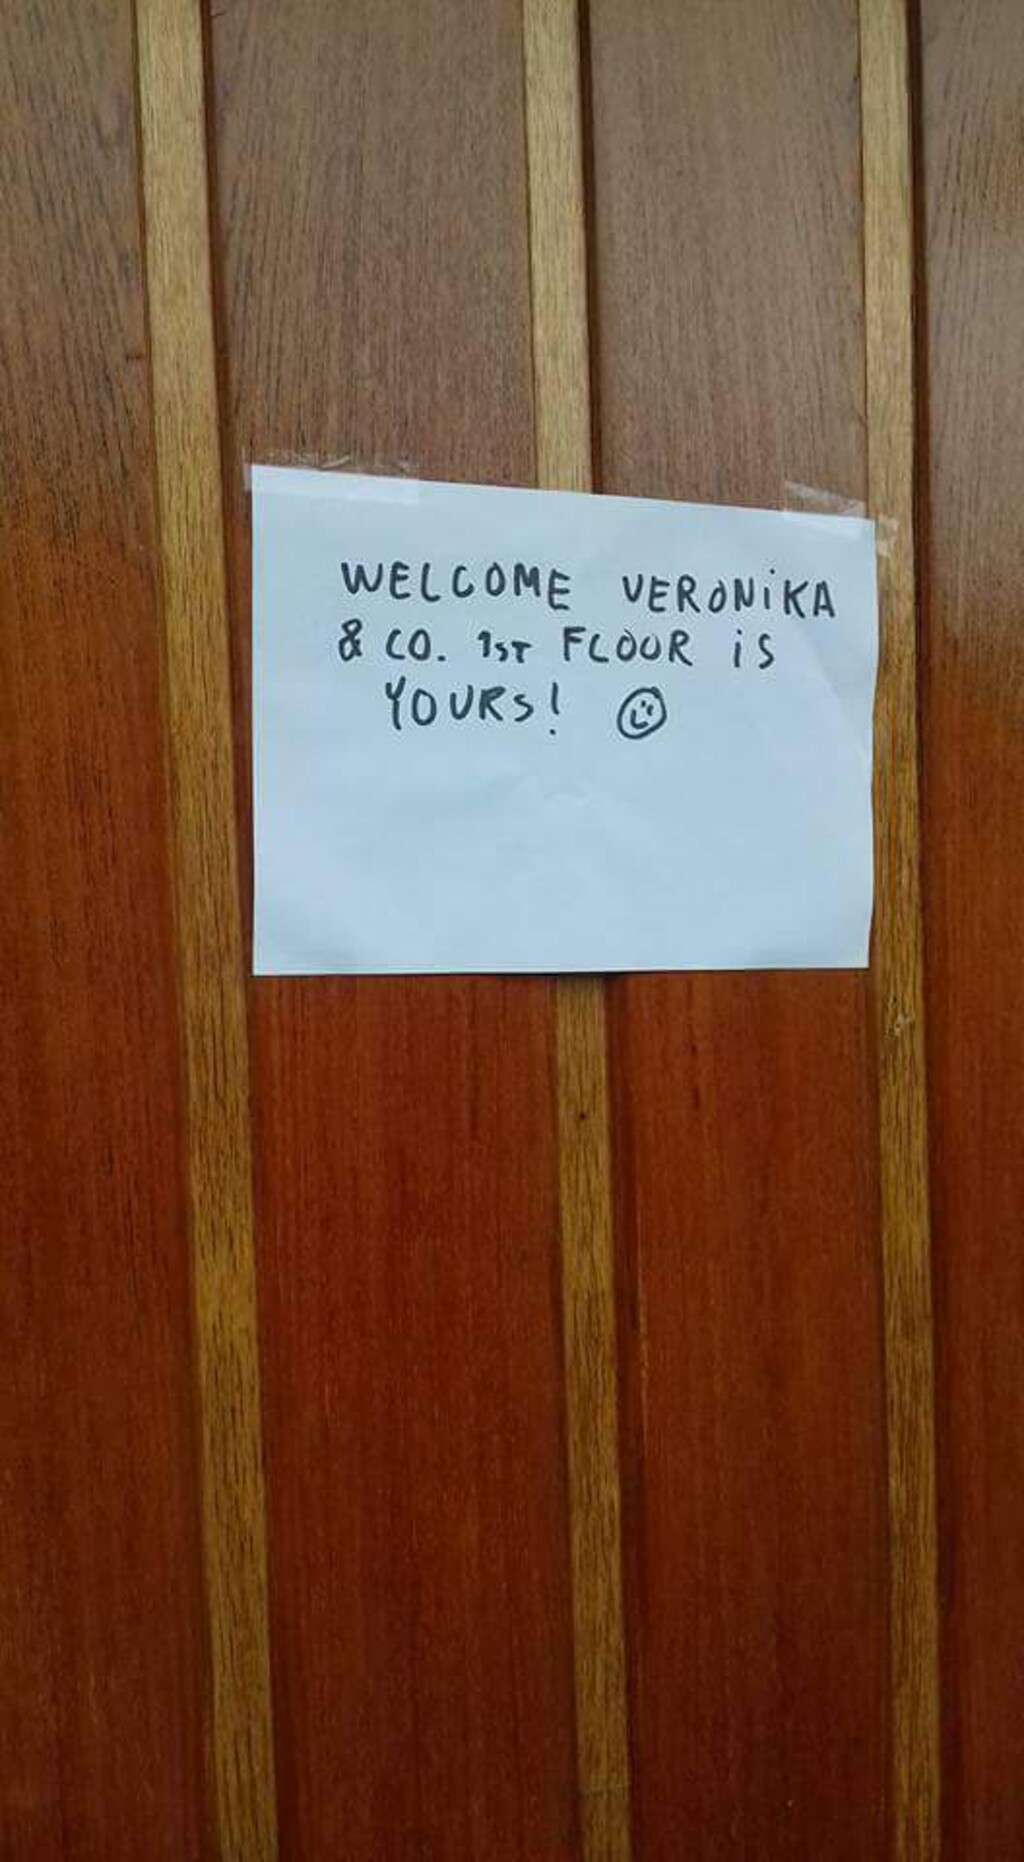 WELCOME VERONiKA
& CO. 1ST FLOOR iS
YOURS! ☺